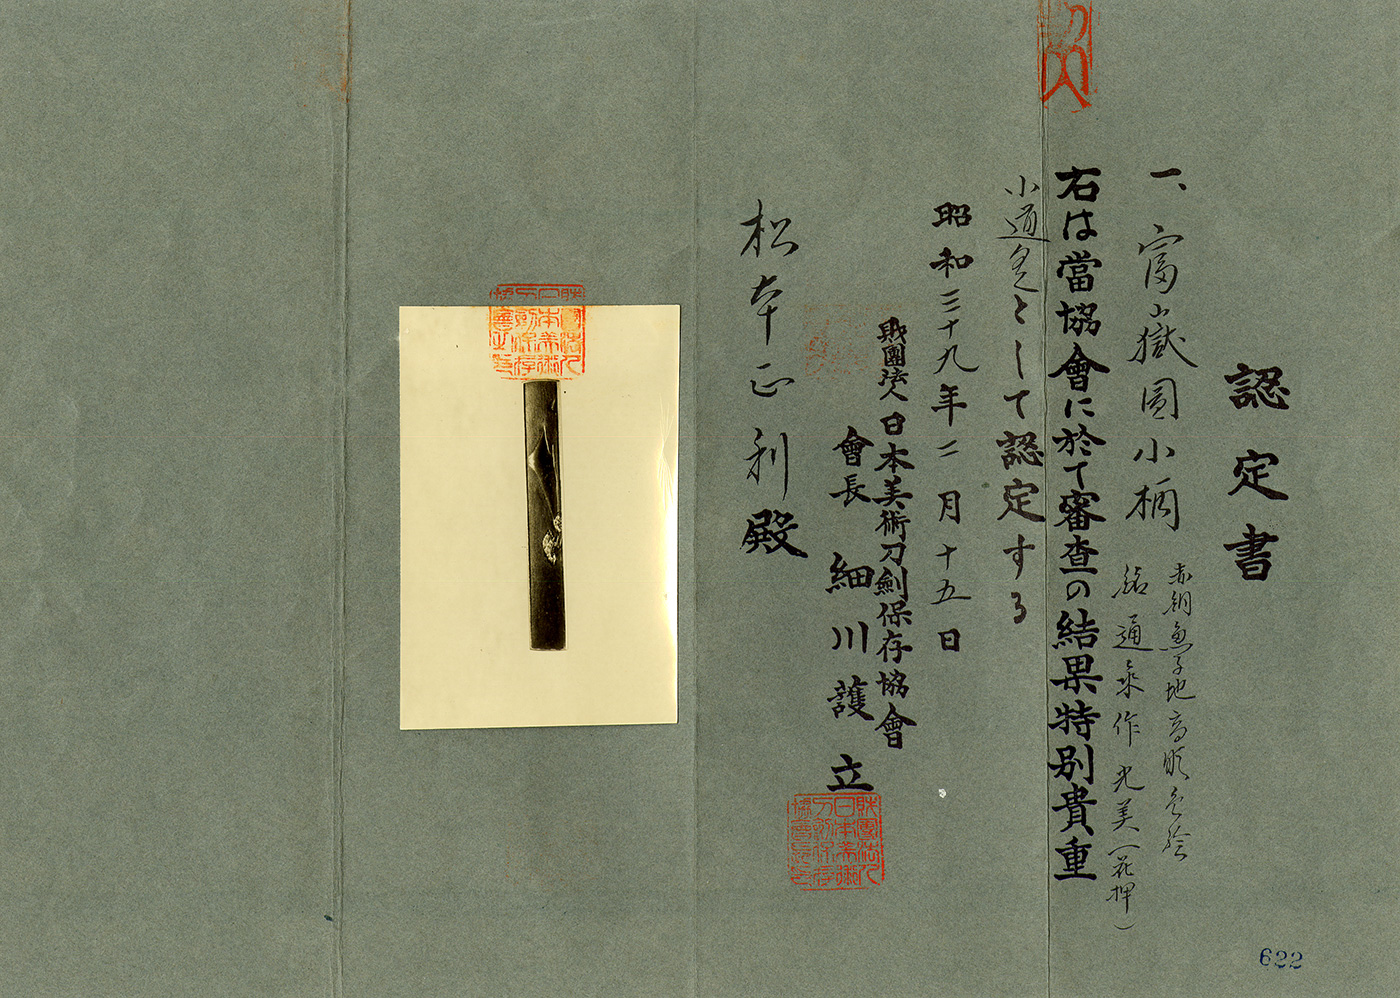 認定書
一、富嶽圖小柄
赤銅魚子地高彫色絵
銘 通乗作 光美(花押)
右は當協會に於て審査の結果特別貴重
小道具として認定する
昭和三十九年二月十五日
財團法人日本美術刀劍保存協會
會長 細川護立
松本正利殿
財團法人日本美術刀劍保存協會長之印
622